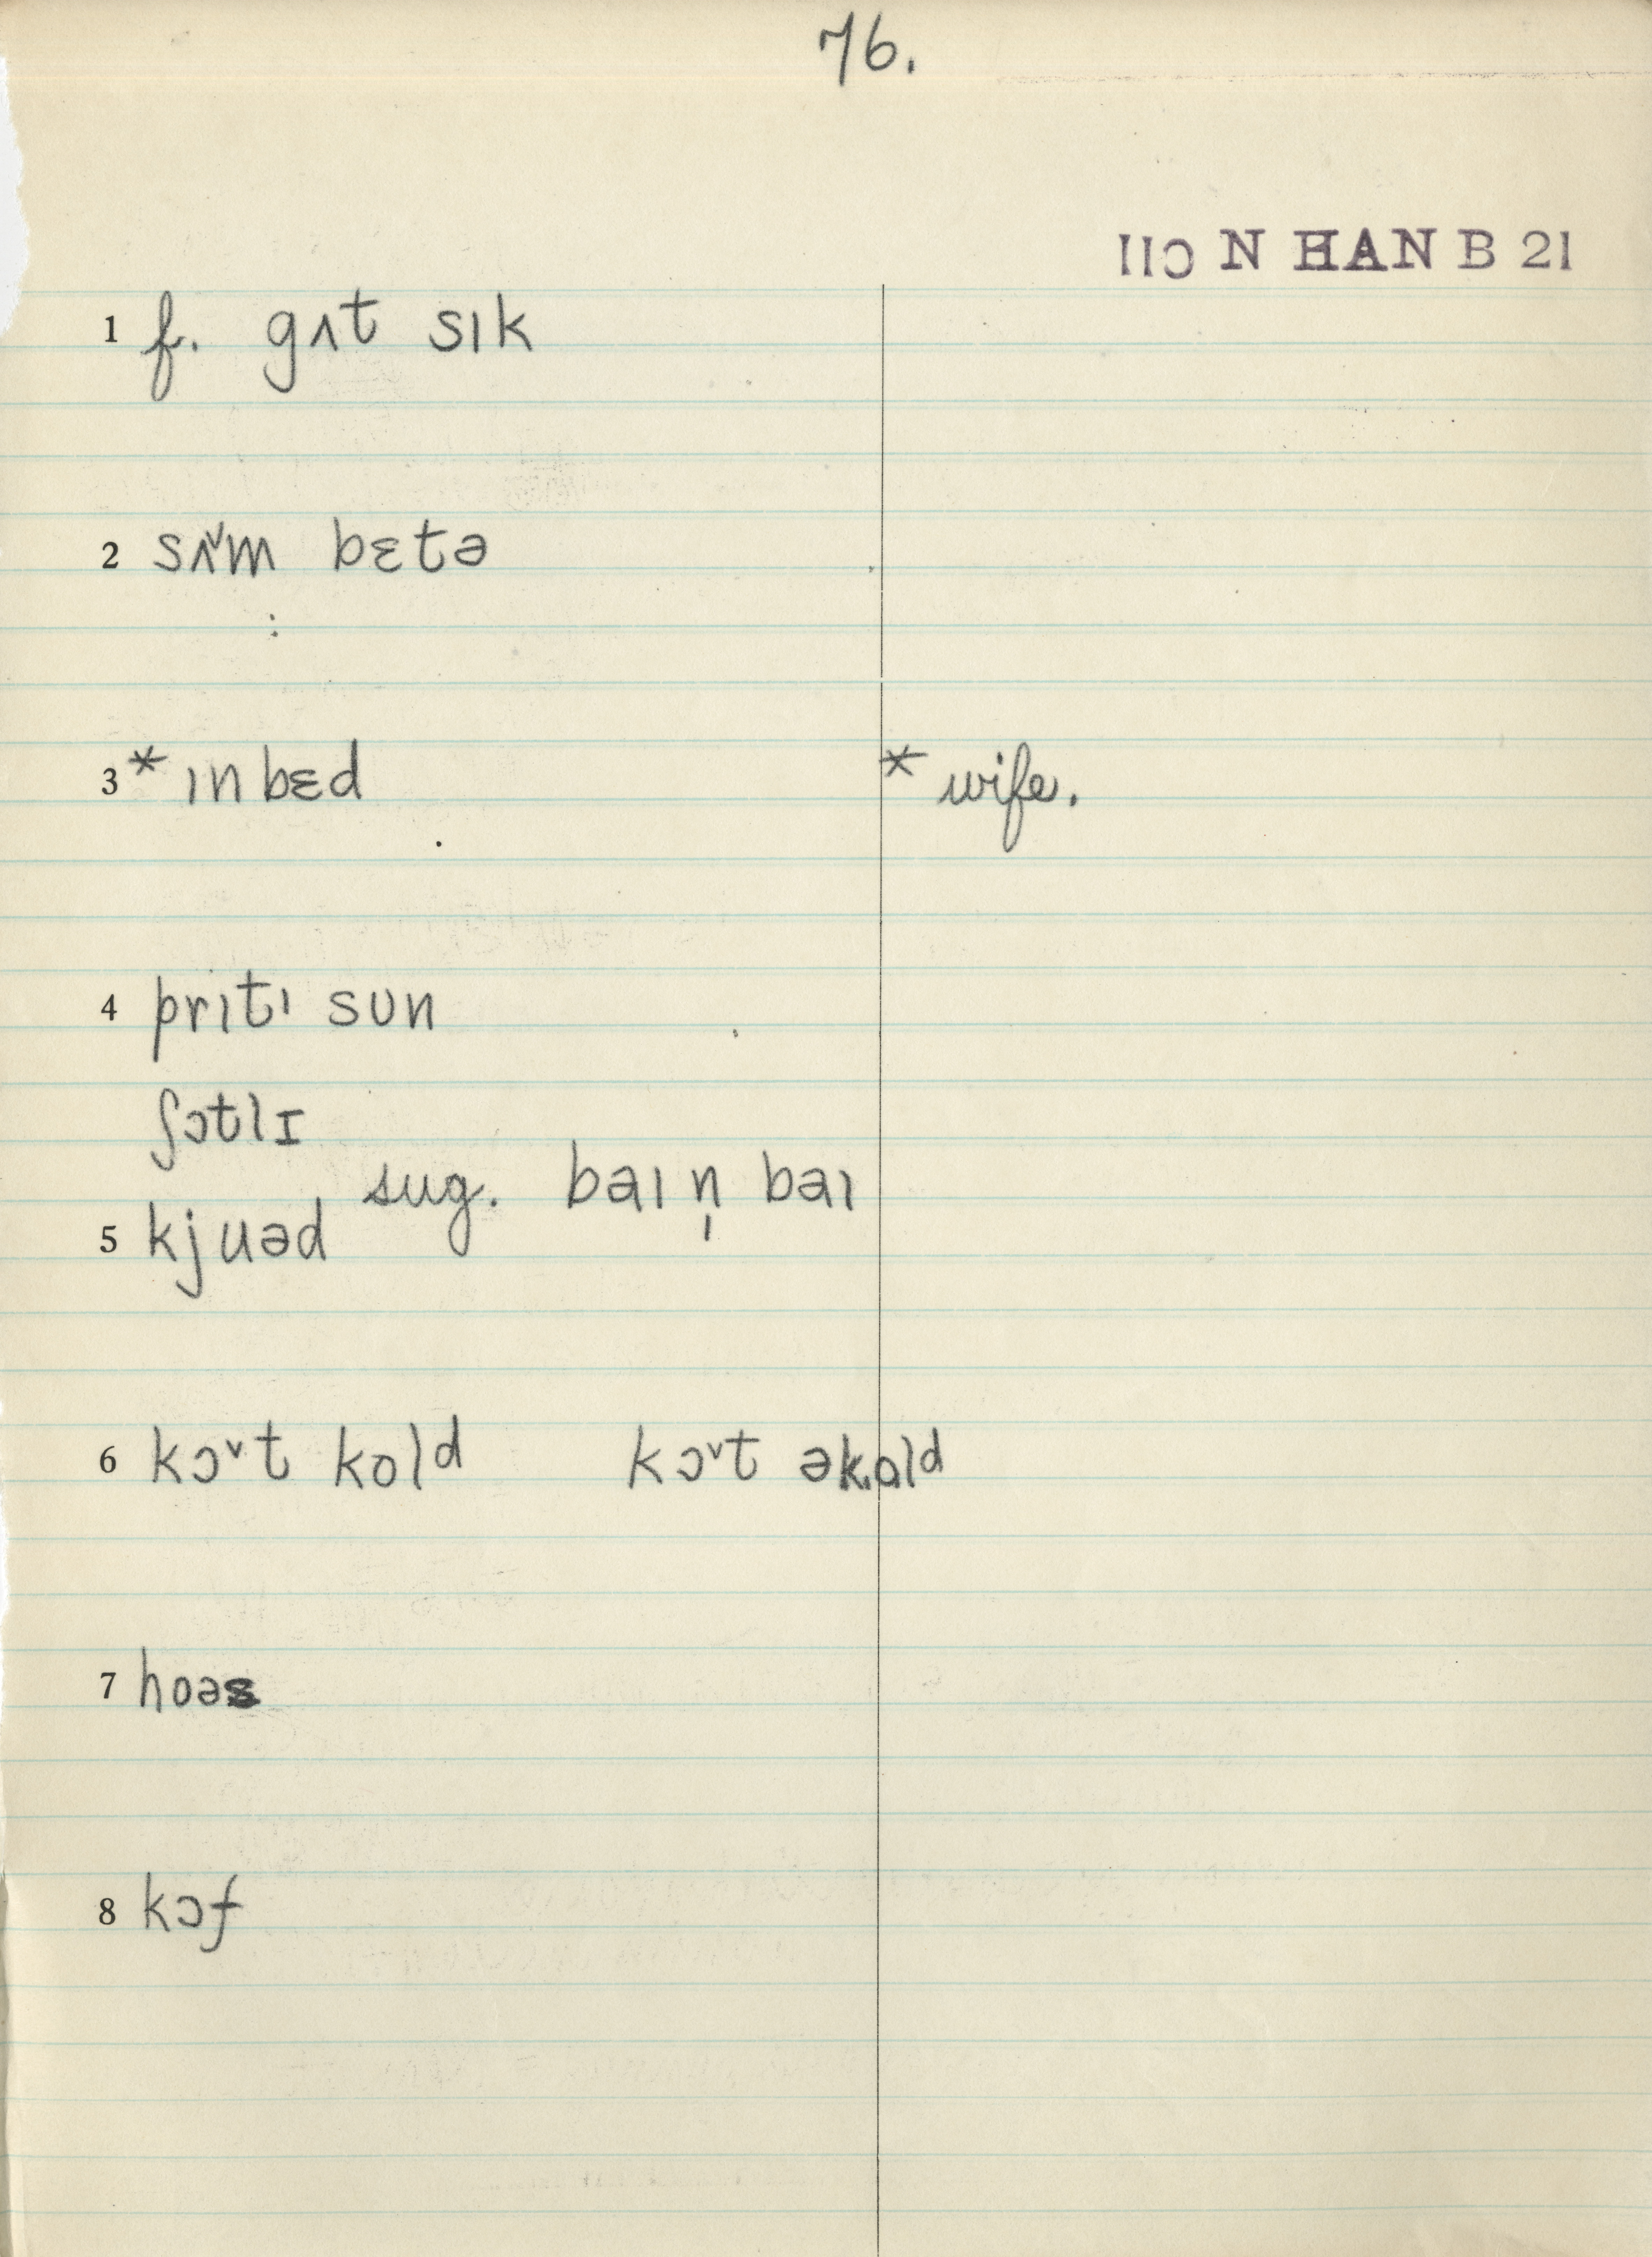 76.
IIƆ N HAN B 21
1 f. gʌt sɪk
2 sʌ˅m bɛtə
3 * ɪn bɛd * wife.
4 prɪtɪ sun
ʃɔtlɪ
sug. baɪ n̩ baɪ
5 kjuəd
6 kɔ˅t kold kɔ˅t əkold
7 hoəs
8 kɔf